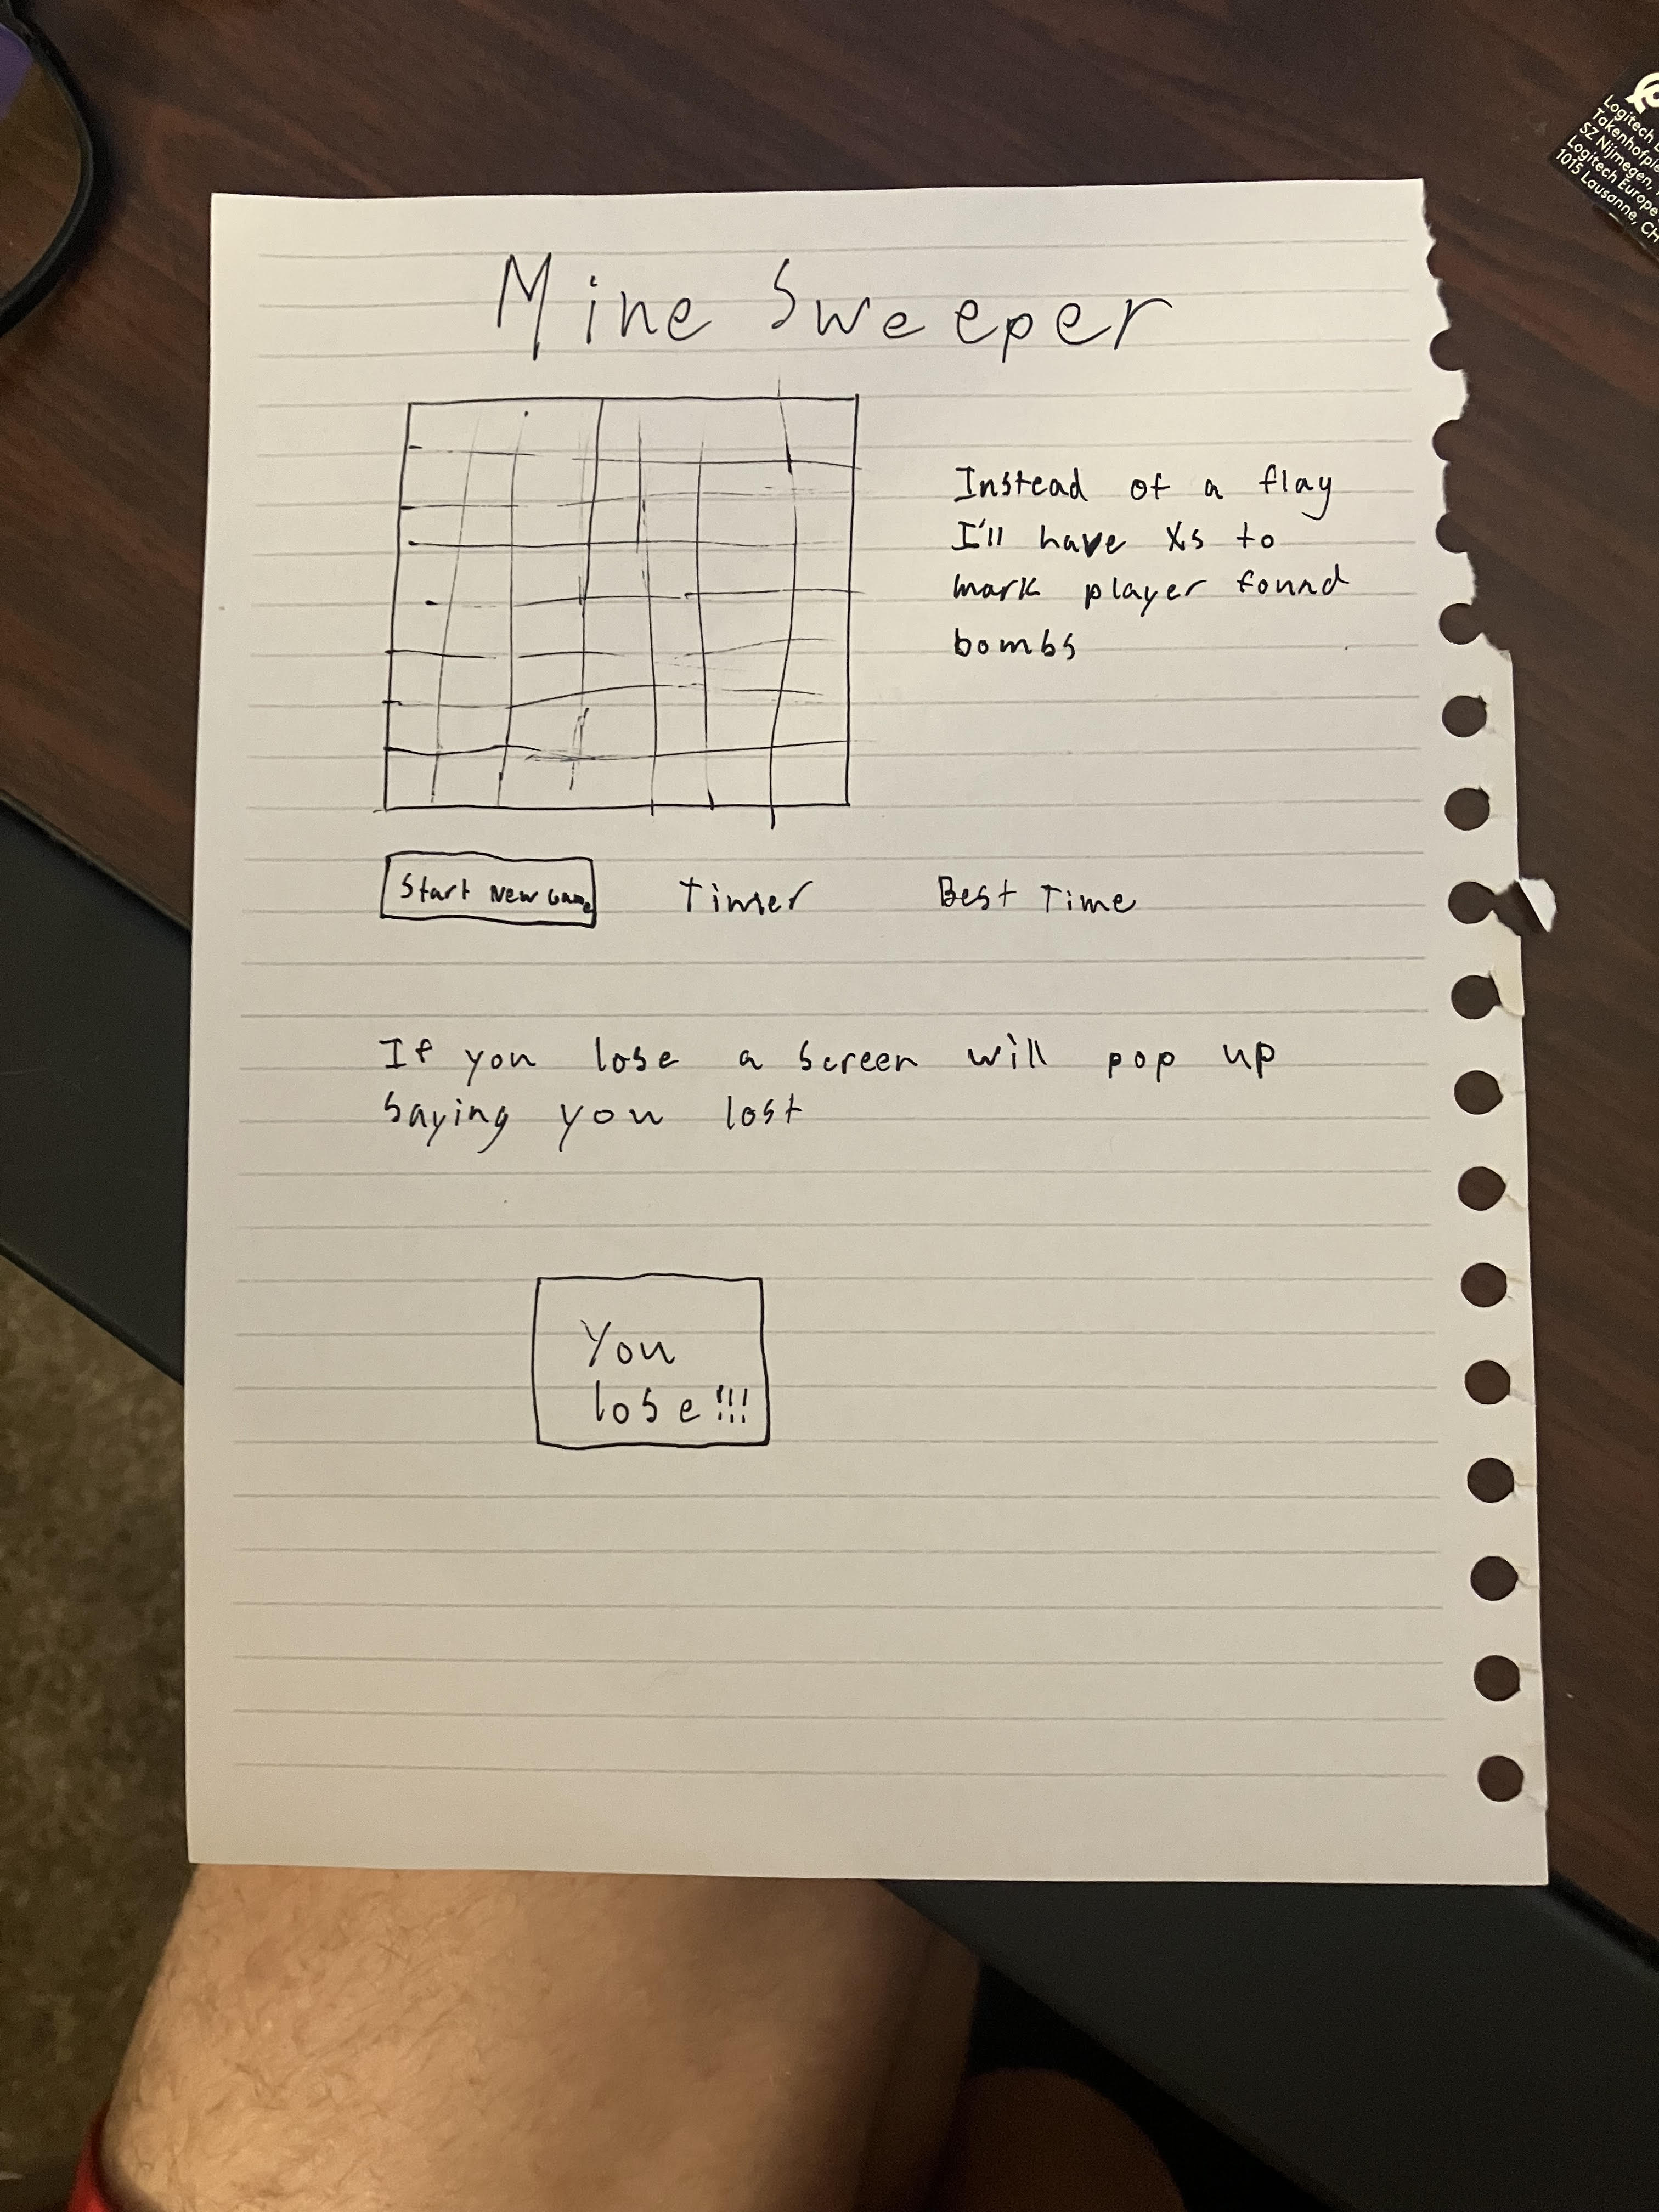 Mine Sweeper
Instead of a flag
I'll have Xs to
mark player found
bombs
Start New Game
Timer
Best Time
If you lose a screen will pop up
saying you lost
You
lose!!!
Logitech
Takenhofple
SZ Nijmegen,
Logitech Europe
1015 Lausanne, CH